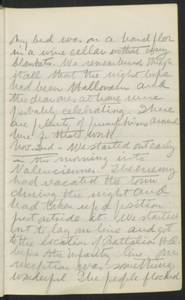 My bed was on a hard floor
in a wine cellar without any
blankets. We remembered through
it all that the night before
had been Halloween and
the dear ones at home were
probably celebrating. There
are plenty of pumpkins around
here if that won't
Nov. 2nd - We started out early
in the morning into
Valenciennes. The enemy
had vacated the town
during the night and
had taken up a position
just outside it. We started
out to lay an line and got
to the location of Battalion H.Q.
before the infantry. Our
reception was something
wonderful. The people flocked